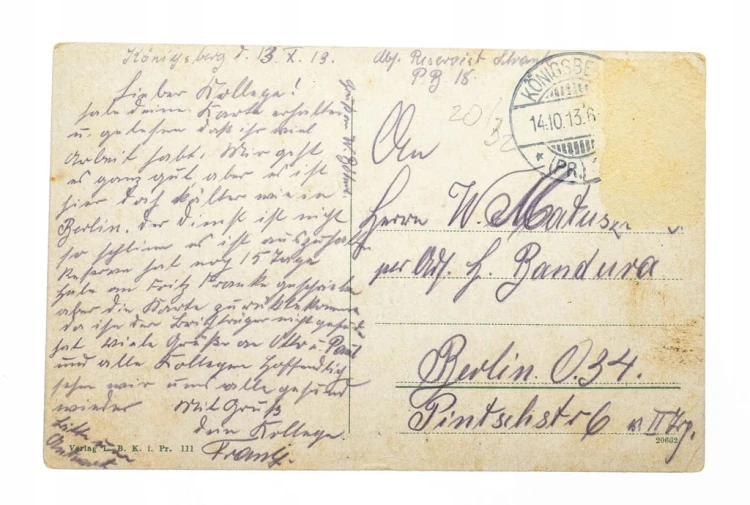 Königsberg d. 13. X. 13.
Abs. Reservist
PB 18.
Lieber Kollege!
habe deine Karte erhalten
u. gelesen daß ihr viel
Arbeit habt. Mir geht
es ganz gut aber es ist
hier doch kälter wie in
Berlin. der Dienst ist nicht
so schlimm es ist auszuhalten
Reserve hat noch 15 Tage
Habe an Fritz Franke geschickt
aber die Karte zurückbekommen
da ihn der Briefträger nicht gefunden
hat viele Grüße an Otto u. Paul
und alle Kollegen Hoffentlich
sehen wir uns alle gesund
wieder Mit Gruß
dein Kollege
Franz.
Bitte um
Antwort
Gruß an W.
20/32
KÖNIGSBE
14.10.13.6
* (PR.)
An
Herrn W.
per Adr. H. Bandura
Berlin. O.34.
Pintschstr 6 v. II Trp.
Verlag L. B. K. i. Pr. 111
20662